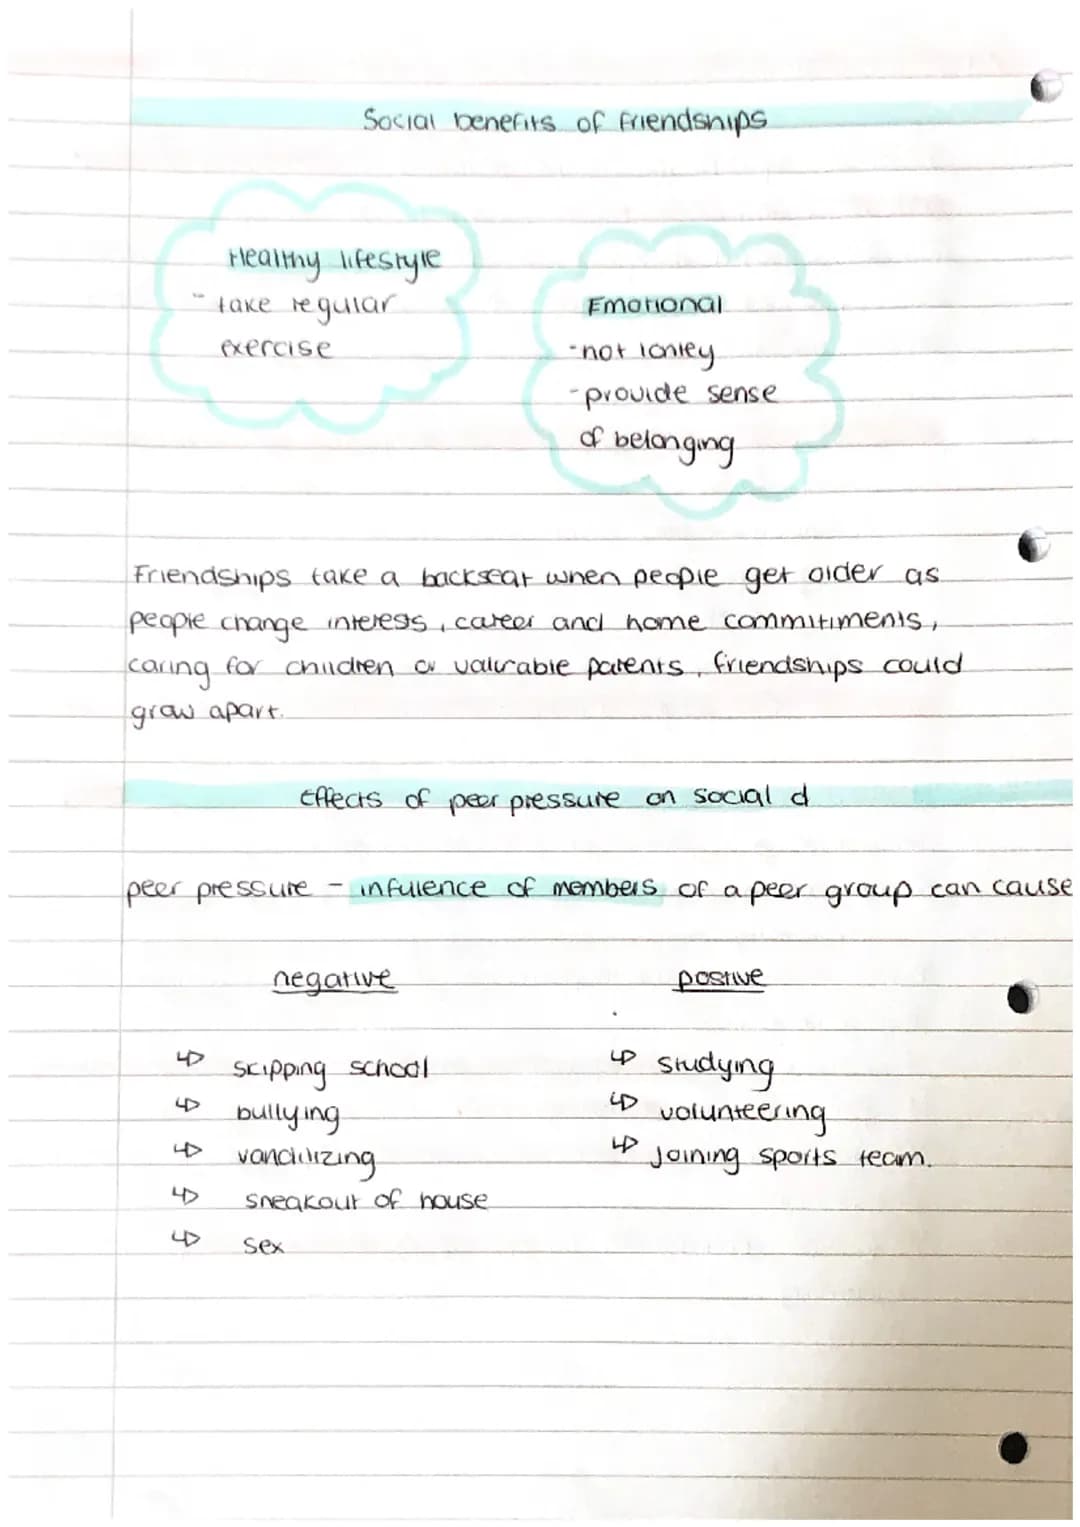 Social benefits of friendships
Healthy lifestyle
- take regular
exercise
Emotional
-not lonley
-provide sense
of belonging
Friendships take a backseat when people get older as
people change interests, career and home commitiments,
caring for children or valurable parents, friendships could
grow apart.
Effects of peer pressure on social d
peer pressure - infulence of members of a peer group can cause
negative
postive
↳ scipping school
↳ bullying
↳ vandilizing
↳ sneakout of house
↳ sex
↳ studying
↳ volunteering
↳ Joining sports team.